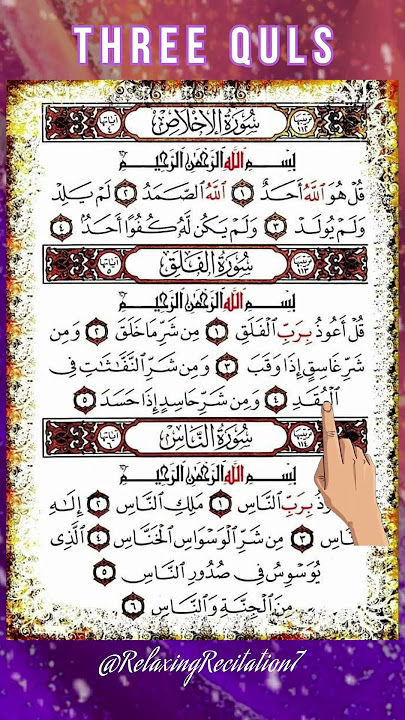 THREE QULS
سُورَةُ الإِخْلَاصِ
بِسْمِ ٱللَّهِ ٱلرَّحْمَٰنِ ٱلرَّحِيمِ
قُلْ هُوَ ٱللَّهُ أَحَدٌ ١ ٱللَّهُ ٱلصَّمَدُ ٢ لَمْ يَلِدْ
وَلَمْ يُولَدْ ٣ وَلَمْ يَكُن لَّهُۥ كُفُوًا أَحَدٌۢ ٤
سُورَةُ الفَلَقِ
بِسْمِ ٱللَّهِ ٱلرَّحْمَٰنِ ٱلرَّحِيمِ
قُلْ أَعُوذُ بِرَبِّ ٱلْفَلَقِ ١ مِن شَرِّ مَا خَلَقَ ٢ وَمِن
شَرِّ غَاسِقٍ إِذَا وَقَبَ ٣ وَمِن شَرِّ ٱلنَّفَّٰثَٰتِ فِى
ٱلْعُقَدِ ٤ وَمِن شَرِّ حَاسِدٍ إِذَا حَسَدَ ٥
سُورَةُ النَّاسِ
بِسْمِ ٱللَّهِ ٱلرَّحْمَٰنِ ٱلرَّحِيمِ
بِرَبِّ ٱلنَّاسِ ١ مَلِكِ ٱلنَّاسِ ٢ إِلَٰهِ
٣ مِن شَرِّ ٱلْوَسْوَاسِ ٱلْخَنَّاسِ ٤ ٱلَّذِى
يُوَسْوِسُ فِى صُدُورِ ٱلنَّاسِ ٥
مِنَ ٱلْجِنَّةِ وَٱلنَّاسِ ٦
@RelaxingRecitation7